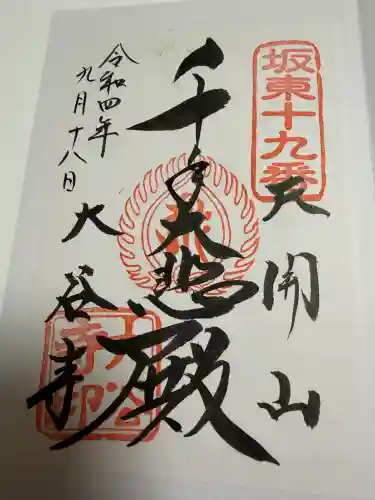 坂東十九番
天開山
千手大悲殿
令和四年
九月十八日
大谷寺